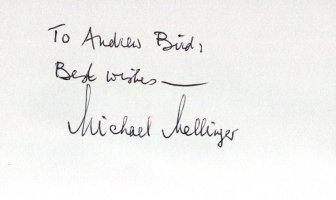 To Andrew Bird,
Best wishes —
Michael Mellinger